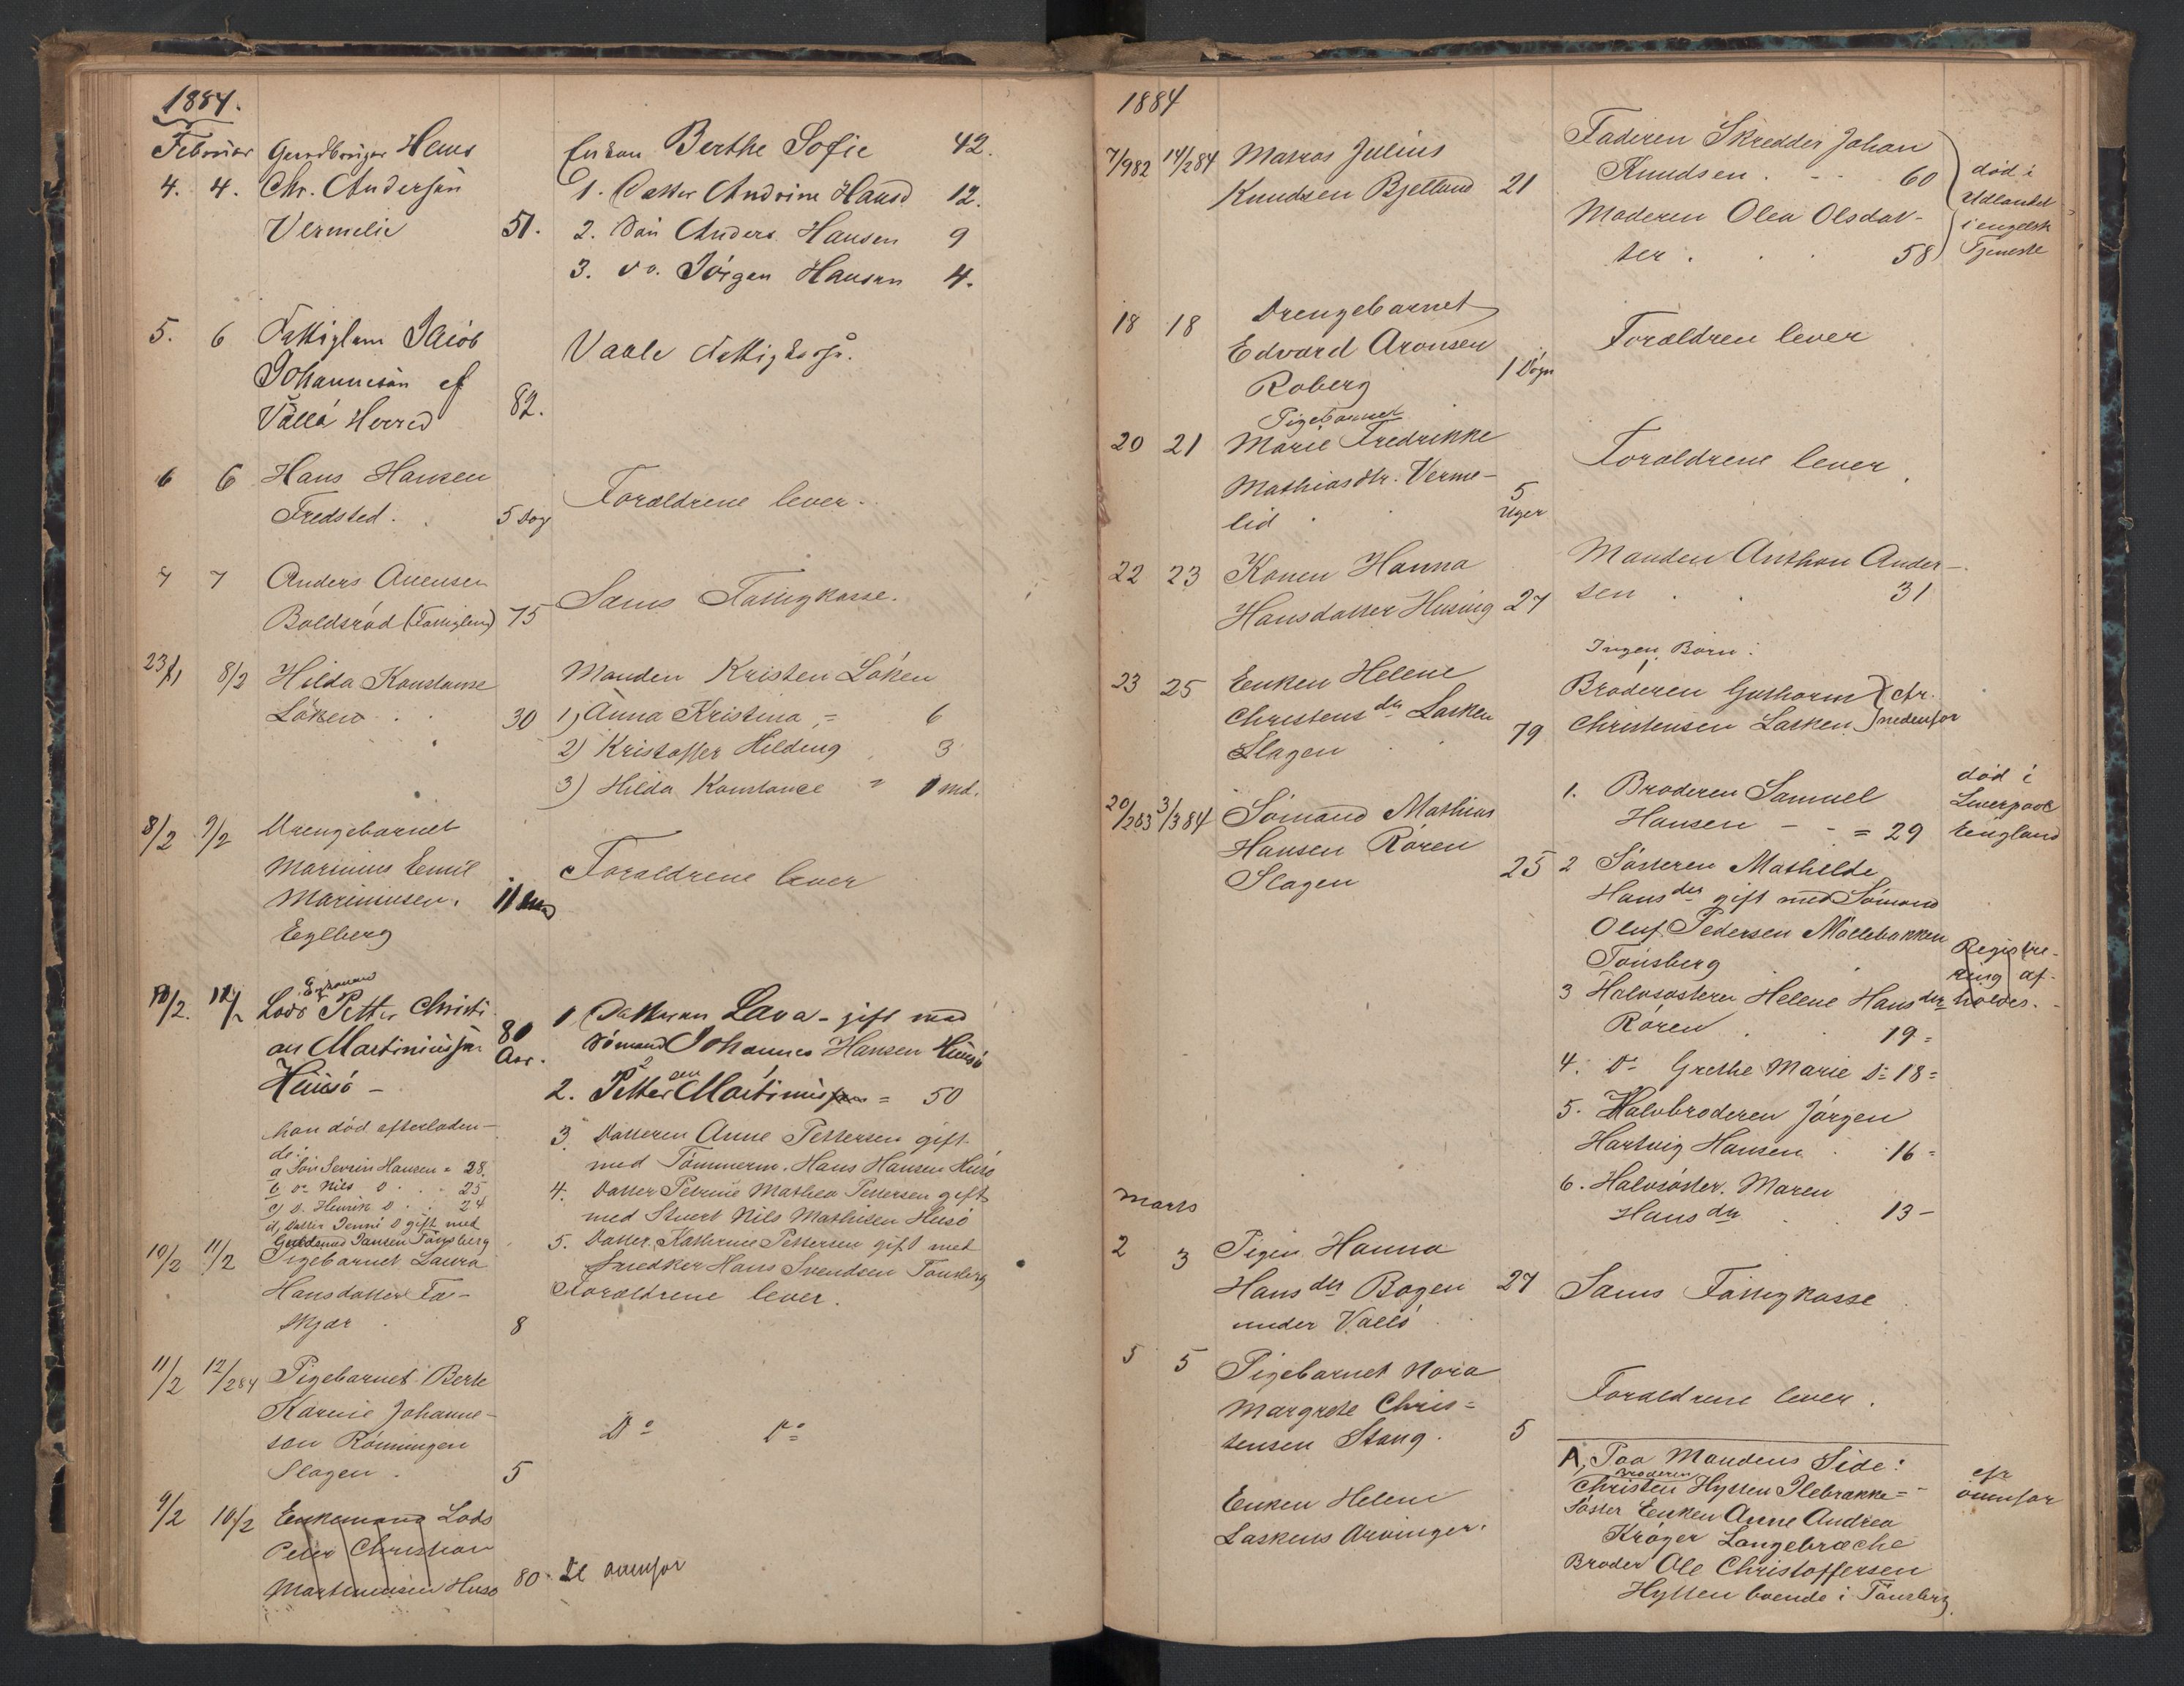 1884.
Februar
4. 4. Gaardbruger Hans
Chr. Andersen
Vermelid 51.
Enken Berthe Sofie 42.
1. Datter Andrine Hansd 12.
2. Søn Anders Hansen 9
3. Do. Jörgen Hansen 4.
5. 6 Fattiglem Jacob
Johannesen af
Vallö Herred 82.
Vaale Fattigkasse.
6 6 Hans Hansen
Fredsted. 5 Dag
Forældrene lever.
7 7 Anders Arensen
Boldsröd (Fattiglem) 75
Sems Fattigkasse.
23/1 8/2 Hilda Konstanse
Löken 30
Manden Kristen Löken
1) Anna Kristina = 6
2) Kristoffer Hilding 3
3) Hilda Konstance = 1 md.
8/2 9/2 Drengebarnet
Marinius Emil
Mariniusen.
Eglberg
Forældrene lever
10/2. 11/2 Enkemand
Lods Petter Christi
an Martiniussen 80
Aar.
Husö –
1 Datteren Lava - gift med
Sömand Johannes Hansen Husö
2. Petter Martinius = 50
3. Datteren Anne Pettersen gift
med Tömmerm. Hans Hansen Husö
4. Datter Petrine Mathea Pettersen gift
med Stuert Nils Mathisen Husö
5. Datter Katherine Pettersen gift med
Snedker Hans Svendsen Tönsberg
han död efterladen-
de:
a Sön Sevrin Hansen = 28.
b Do Nils D. 25
c) D. Henrik D. 24
d, Datter Jenni D gift med
Guldsmed Jansen Tönsberg
10/2 11/2 Pigebarnet Laura
Hansdatter Fa-
skjær 8
Forældrene lever.
11/2 12/284 Pigebarnet Berte
Karine Johanne-
sen Rönningen
Slagen. 5
Do Do
9/2 10/2 Enkemand Lods
Peter Christian
Martiniusen Husö 80
Se ovenfor
1884
7/982 14/284 Matros Julius
Knudsen Bjelland 21
Faderen Skredder Johan
Knudsen. 60
Moderen Olea Olsdat-
ter. 58
död i
Udlandet
i engelsk
Tjeneste
18 18 Drengebarnet
Edvard Aronsen
Roberg 1 Dögn
Forældren lever
20 21 Pigebarnet
Marie Fredrikke
Mathiasdtr. Verme-
lid 5
Uger
Forældrene lever
22 23 Konen Hanna
Hansdatter Husöig 27
Manden Anthon Ander-
sen 31
23 25 Enken Helene
Christens dtr Lasken
Slagen 79
Ingen Börn:
Broderen Guthorm
Christensen Lasken.
cfr.
nedenfor
20/283 3/384 Sömand Mathias
Hansen Rören
Slagen 25
1. Broderen Samuel
Hansen - - = 29
död i
Liverpool
England
2 Söstren Mathilde
Hansdtr gift med Sömand
Oluf Pedersen Möllebakken
Tönsberg
Registre-
ring af-
holdes.
3 Halvsösteren Helene Hansdtr
Rören 19 =
4. Do Grethe Marie Do 18 =
5. Halvbroderen Jörgen
Hartvig Hansen 16 =
6. Halvsöster. Maren
Hansdtr 13 –
Marts
2 3 Pigen Hanna
Hansdtr Bogen 27
under Vallö
Sems Fattigkasse
5 5 Pigebarnet Nora
Margrete Chris=
tensen Stang. 5
Forældrene lever.
Enken Helene
Laskens Arvinger.
A, Paa Mandens Side:
Broderen
Christen Hytten Ilebrække=
Söster Enken Anne Andrea
Kröger Langebræche
Broder Ole Christoffersen
Hytten boende i Tönsberg.
cfr
ovenfor